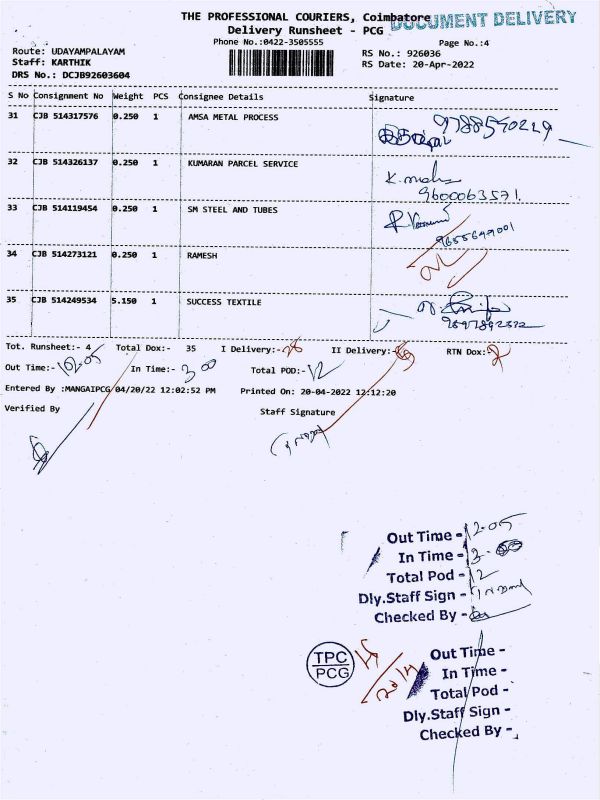 THE PROFESSIONAL COURIERS, Coimbatore
DOCUMENT DELIVERY
Delivery Runsheet - PCG
Phone No.:0422-3505555
Page No.:4
Route: UDAYAMPALAYAM
RS No.: 926036
Staff: KARTHIK
RS Date: 20-Apr-2022
DRS No.: DCJB92603604
S No Consignment No Weight PCS Consignee Details Signature
31 CJB 514317576 0.250 1 AMSA METAL PROCESS
9788540229
32 CJB 514326137 0.250 1 KUMARAN PARCEL SERVICE
9600063571
33 CJB 514119454 0.250 1 SM STEEL AND TUBES
9655649001
34 CJB 514273121 0.250 1 RAMESH
35 CJB 514249534 5.150 1 SUCCESS TEXTILE
Tot. Runsheet:- 4 Total Dox:- 35 I Delivery:- II Delivery:- RTN Dox:- 2
Out Time:- 12.05 In Time:- 3 00 Total POD:- 12
Entered By :MANGAIPCG 04/20/22 12:02:52 PM Printed On: 20-04-2022 12:12:20
Verified By Staff Signature
Out Time - 12.05
In Time - 3.00
Total Pod - 12
Dly.Staff Sign -
Checked By -
TPC
PCG
Out Time -
In Time -
Total Pod -
Dly.Staff Sign -
Checked By -